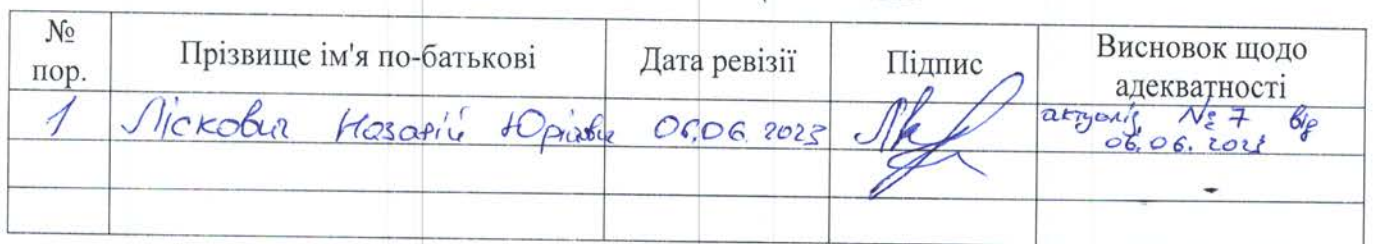 № пор. Прізвище ім'я по-батькові Дата ревізії Підпис Висновок щодо адекватності
1 Ліскович Назарій Юрійович 06.06 2023 актуаліз № 7 від
06.06.2023